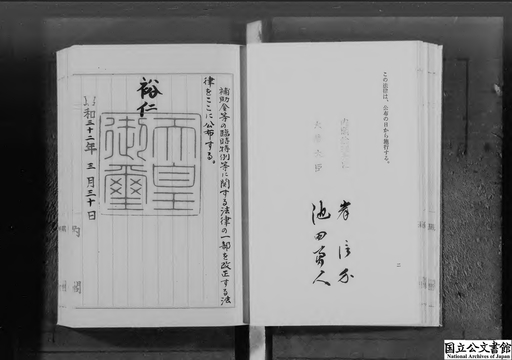 補助金等の臨時特例等に関する法律の一部を改正する法
律をここに公布する。
裕仁
天皇御璽
昭和三十二年三月三十日
この法律は、公布の日から施行する。
内閣総理大臣
大蔵大臣
岸信介
池田勇人
二
国立公文書館
National Archives of Japan